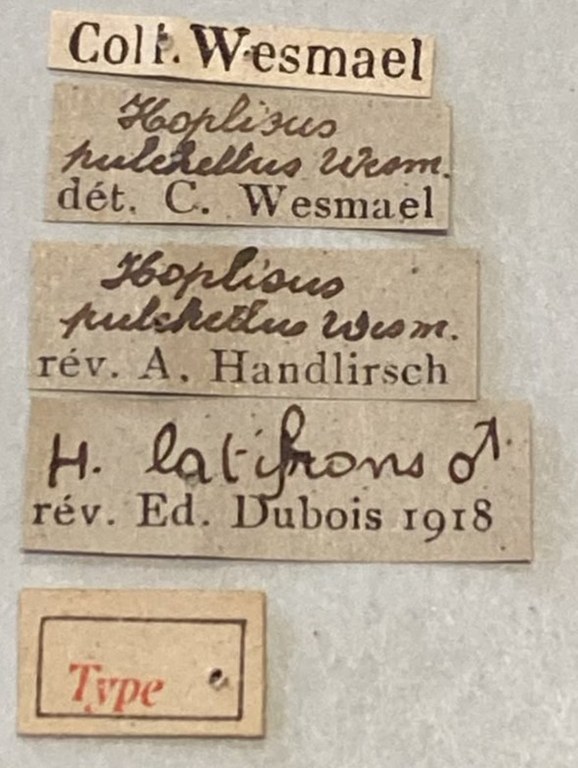 Coll. Wesmael
Hoplisus
pulchellus Wesm.
dét. C. Wesmael
Hoplisus
pulchellus Wesm.
rév. A. Handlirsch
H. latifrons ♂
rév. Ed. Dubois 1918
Type